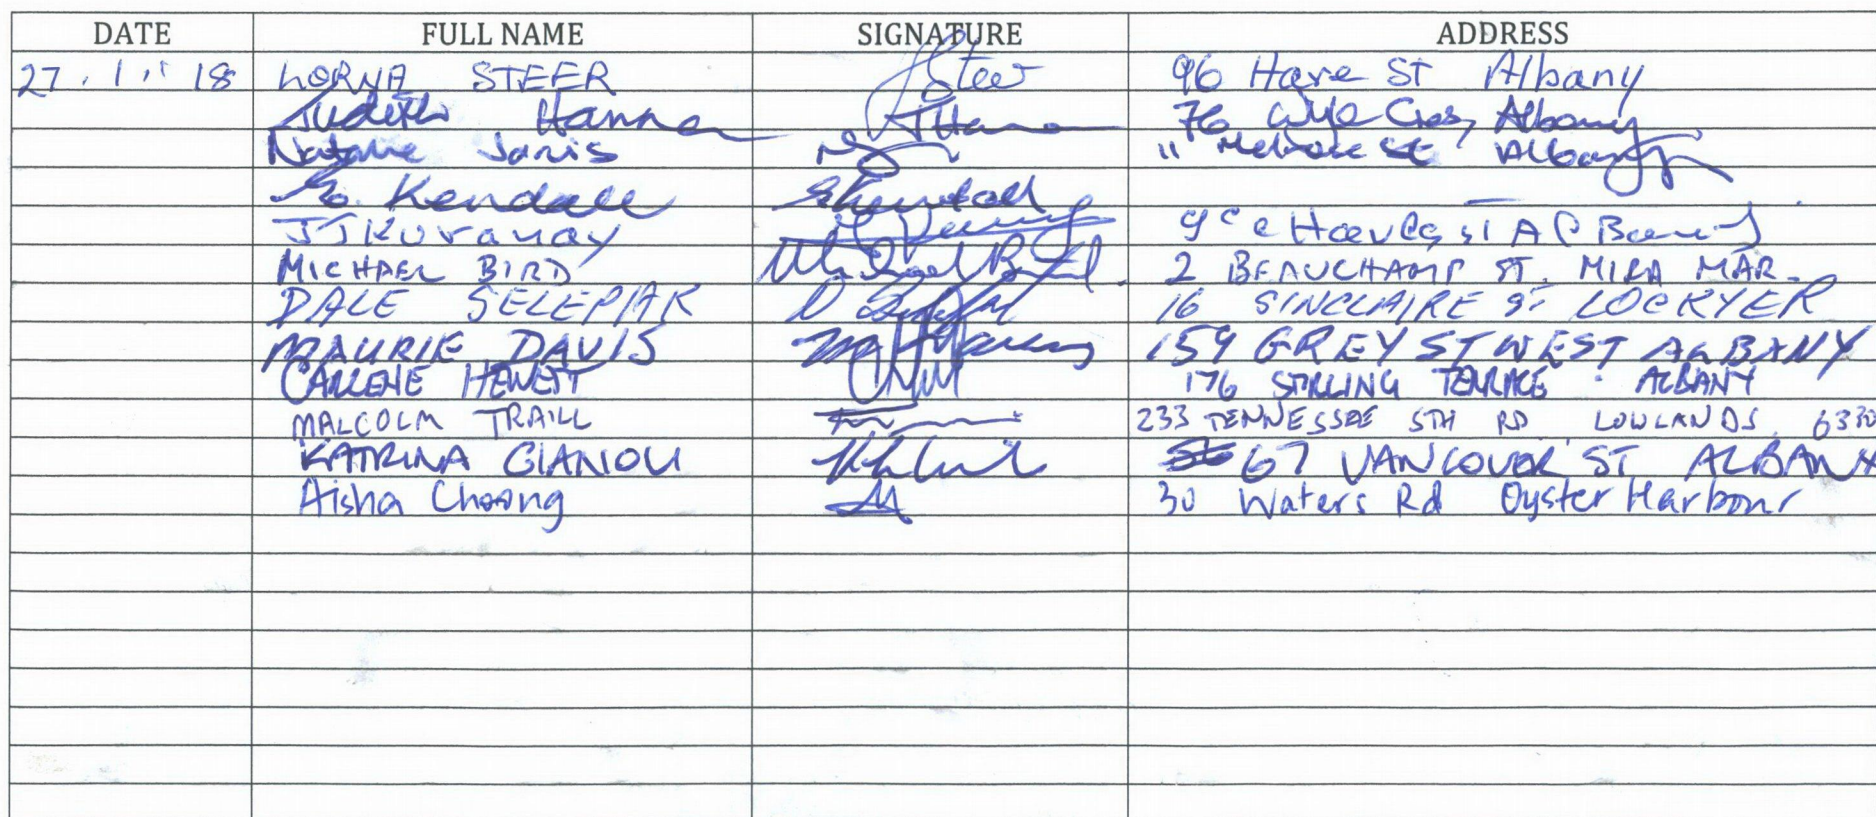 DATE FULL NAME SIGNATURE ADDRESS
27.1.18 LORNA STEER Steer 96 Hare ST Albany
Judith Hanna JHanna 76 Wylie Cres, Albany
Natalie Jarvis 11 Melrose St Albany
E. Kendall EKendall
JJKuranay
MICHAEL BIRD Michael Bird. 2 BEAUCHAMP ST. MIRA MAR.
DALE SELEPIAK 16 SINCLAIRE ST LOCKYER
MAURIE DAVIS 159 GREY ST WEST ALBANY
CARLENE HEWETT 176 STIRLING TERRACE ALBANY
MALCOLM TRAILL 233 TENNESSEE STH RD LOWLANDS 6330
KATRINA GIANOLI 67 VANCOUVER ST ALBANY
Aisha Choong 30 Waters Rd Oyster Harbour